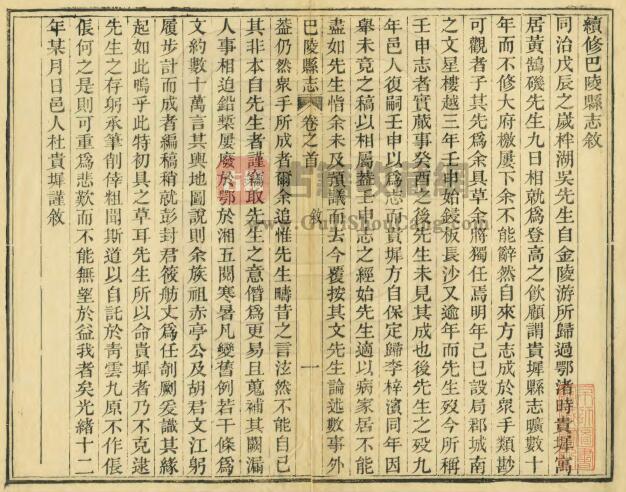 續修巴陵縣志敘
同治戊辰之歲柈湖吳先生自金陵游所歸過鄂渚時貴墀寓
居黃鵠磯先生九日相就為登高之飲顧謂貴墀縣志曠數十
年而不修大府檄屢下余不能辭然自來方志成於眾手類尠
可觀者子其先為余具草余將獨任焉明年己巳設局郡城南
之文星樓越三年壬申始鋟板長沙又逾年而先生歿今所稱
壬申志者實蕆事癸酉之後先生未見其成也後先生之歿九
年邑人復嗣壬申以為志而貴墀方自保定歸李梓濱同年因
舉未竟之稿以相屬蓋壬申志之經始先生適以病家居不能
盡如先生恉余未及預議而去今覆按其文先生論述數事外
巴陵縣志 卷之首 敘 一
葢仍然眾手所成者爾余追惟先生疇昔之言泫然不能自已
其非本自先生者謹竊取先生之意僭為更易且蒐補其闕漏
人事相迫鉛槧屢廢於鄂於湘五閱寒暑凡變舊例若干條為
文約數十萬言其輿地圖說則余族祖赤亭公及胡君文江躬
履步計而成者編稿稍就彭封君筱舫丈為任剞劂爰識其緣
起如此嗚乎此特初具之草耳先生所以命貴墀者乃不克逮
先生之存躬承筆削倖粗聞斯道以自託於青雲九原不作倀
倀何之是則可重為悲歎而不能無望於益我者矣光緒十二
年某月日邑人杜貴墀謹敘